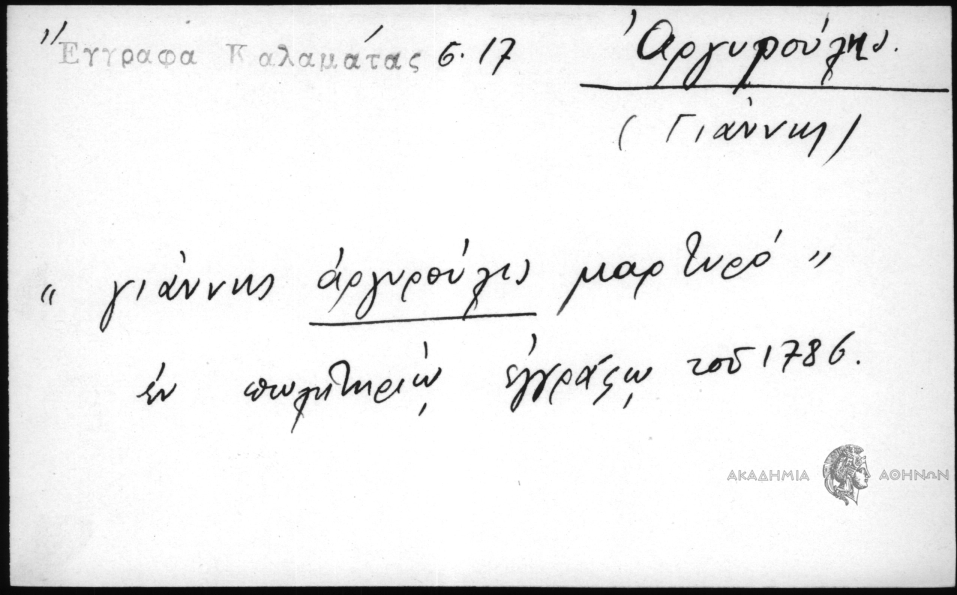 Ἔγγραφα Καλαμάτας 6.17
Ἀργυρούλης.
(Γιάννης)
« γιάννης ἀργυρούλις μαρτυρό »
ἐν πωλητηρίῳ ἐγγράφῳ τοῦ 1786.
ΑΚΑΔΗΜΙΑ ΑΘΗΝΩΝ